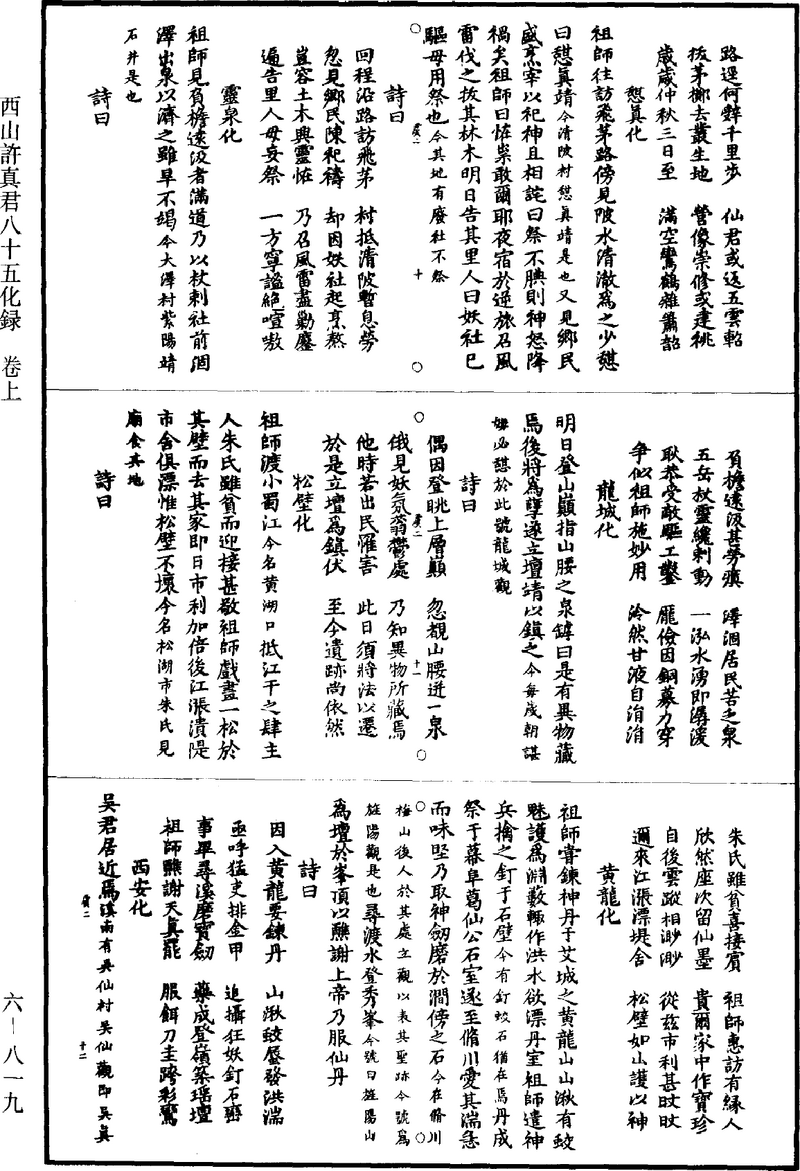 西山許真君八十五化録　卷上
六—八一九
路逕何辭千里步　仙君或返五雲軺
拔茅擲去叢生地　營像崇修或建祧
歲歲仲秋三日至　滿空鸞鶴雜簫韶
憩真化
祖師往訪飛茅路傍見陂水清澈為之少憩
曰憩真靖今清陂村憩真靖是也又見鄉民
盛烹宰以祀神且相詫曰祭不腆則神怒降
禍矣祖師曰怪祟敢爾耶夜宿於逆旅召風
雷伐之拔其林木明日告其里人曰妖社已
驅毋用祭也今其地有廢社不祭
虞二
十
詩曰
回程沿路訪飛茅　村抵清陂暫息勞
忽見鄉民陳祀禱　却因妖社起烹熬
豈容土木興靈怪　乃召風雷盡勦鏖
遍告里人毋妄祭　一方寧謐絕喧嗷
靈泉化
祖師見負擔遠汲者滿道乃以杖刺社前涸
澤出泉以濟之雖旱不竭今大澤村紫陽靖
石井是也
詩曰
負擔遠汲甚勞瘨　澤涸居民苦乏泉
五岳杖靈纔刺動　一泓水湧即潺湲
耿恭受敵驅工鑿　龐儉因銅募力穿
爭似祖師施妙用　泠然甘液自涓涓
龍城化
明日登山巔指山腰之泉罅曰是有異物藏
焉後將為孽遂立壇靖以鎮之今每歲朝謀
嫌必諶於此號龍城觀
詩曰
偶因登眺上層巔　忽覩山腰迸一泉
俄見妖氛蓊鬱處　乃知異物所藏焉
虞二
十一
他時若出民罹害　此日須將法以遷
於是立壇為鎮伏　至今遺跡尚依然
松壁化
祖師渡小蜀江今名黃湖口抵江干之肆主
人朱氏雖貧而迎接甚敬祖師戲畫一松於
其壁而去其家即日市利加倍後江漲潰隄
市舍俱漂惟松壁不壞今名松湖市朱氏見
廟食其地
詩曰
朱氏雖貧喜接賓　祖師惠訪有緣人
欣然座次留仙墨　貴爾家中作寶珍
自後雲蹤相渺渺　從茲市利甚旼旼
邇來江漲漂堤舍　松壁如山護以神
黃龍化
祖師嘗鍊神丹于艾城之黃龍山山湫有蛟
魅護為淵藪輒作洪水欲漂丹室祖師遣神
兵擒之釘于石壁今有釘蛟石猶在焉丹成
祭于幕阜葛仙公石室遂至脩川愛其湍急
而味堅乃取神劒磨於澗傍之石今在脩川
梅山後人於其處立觀以表其聖跡今號為
旌陽觀是也尋渡水登秀峯今號曰旌陽山
為壇於峯頂以醮謝上帝乃服仙丹
詩曰
因入黃龍要鍊丹　山湫蛟蜃發洪湍
亟呼猛吏排金甲　追攝狂妖釘石巒
事畢尋溪磨寶劒　藥成登嶺築瑶壇
祖師醮謝天真罷　服餌刀圭跨彩鸞
西安化
吳君居近焉溪南有吳仙村吳仙觀即吳真
虞二
十二